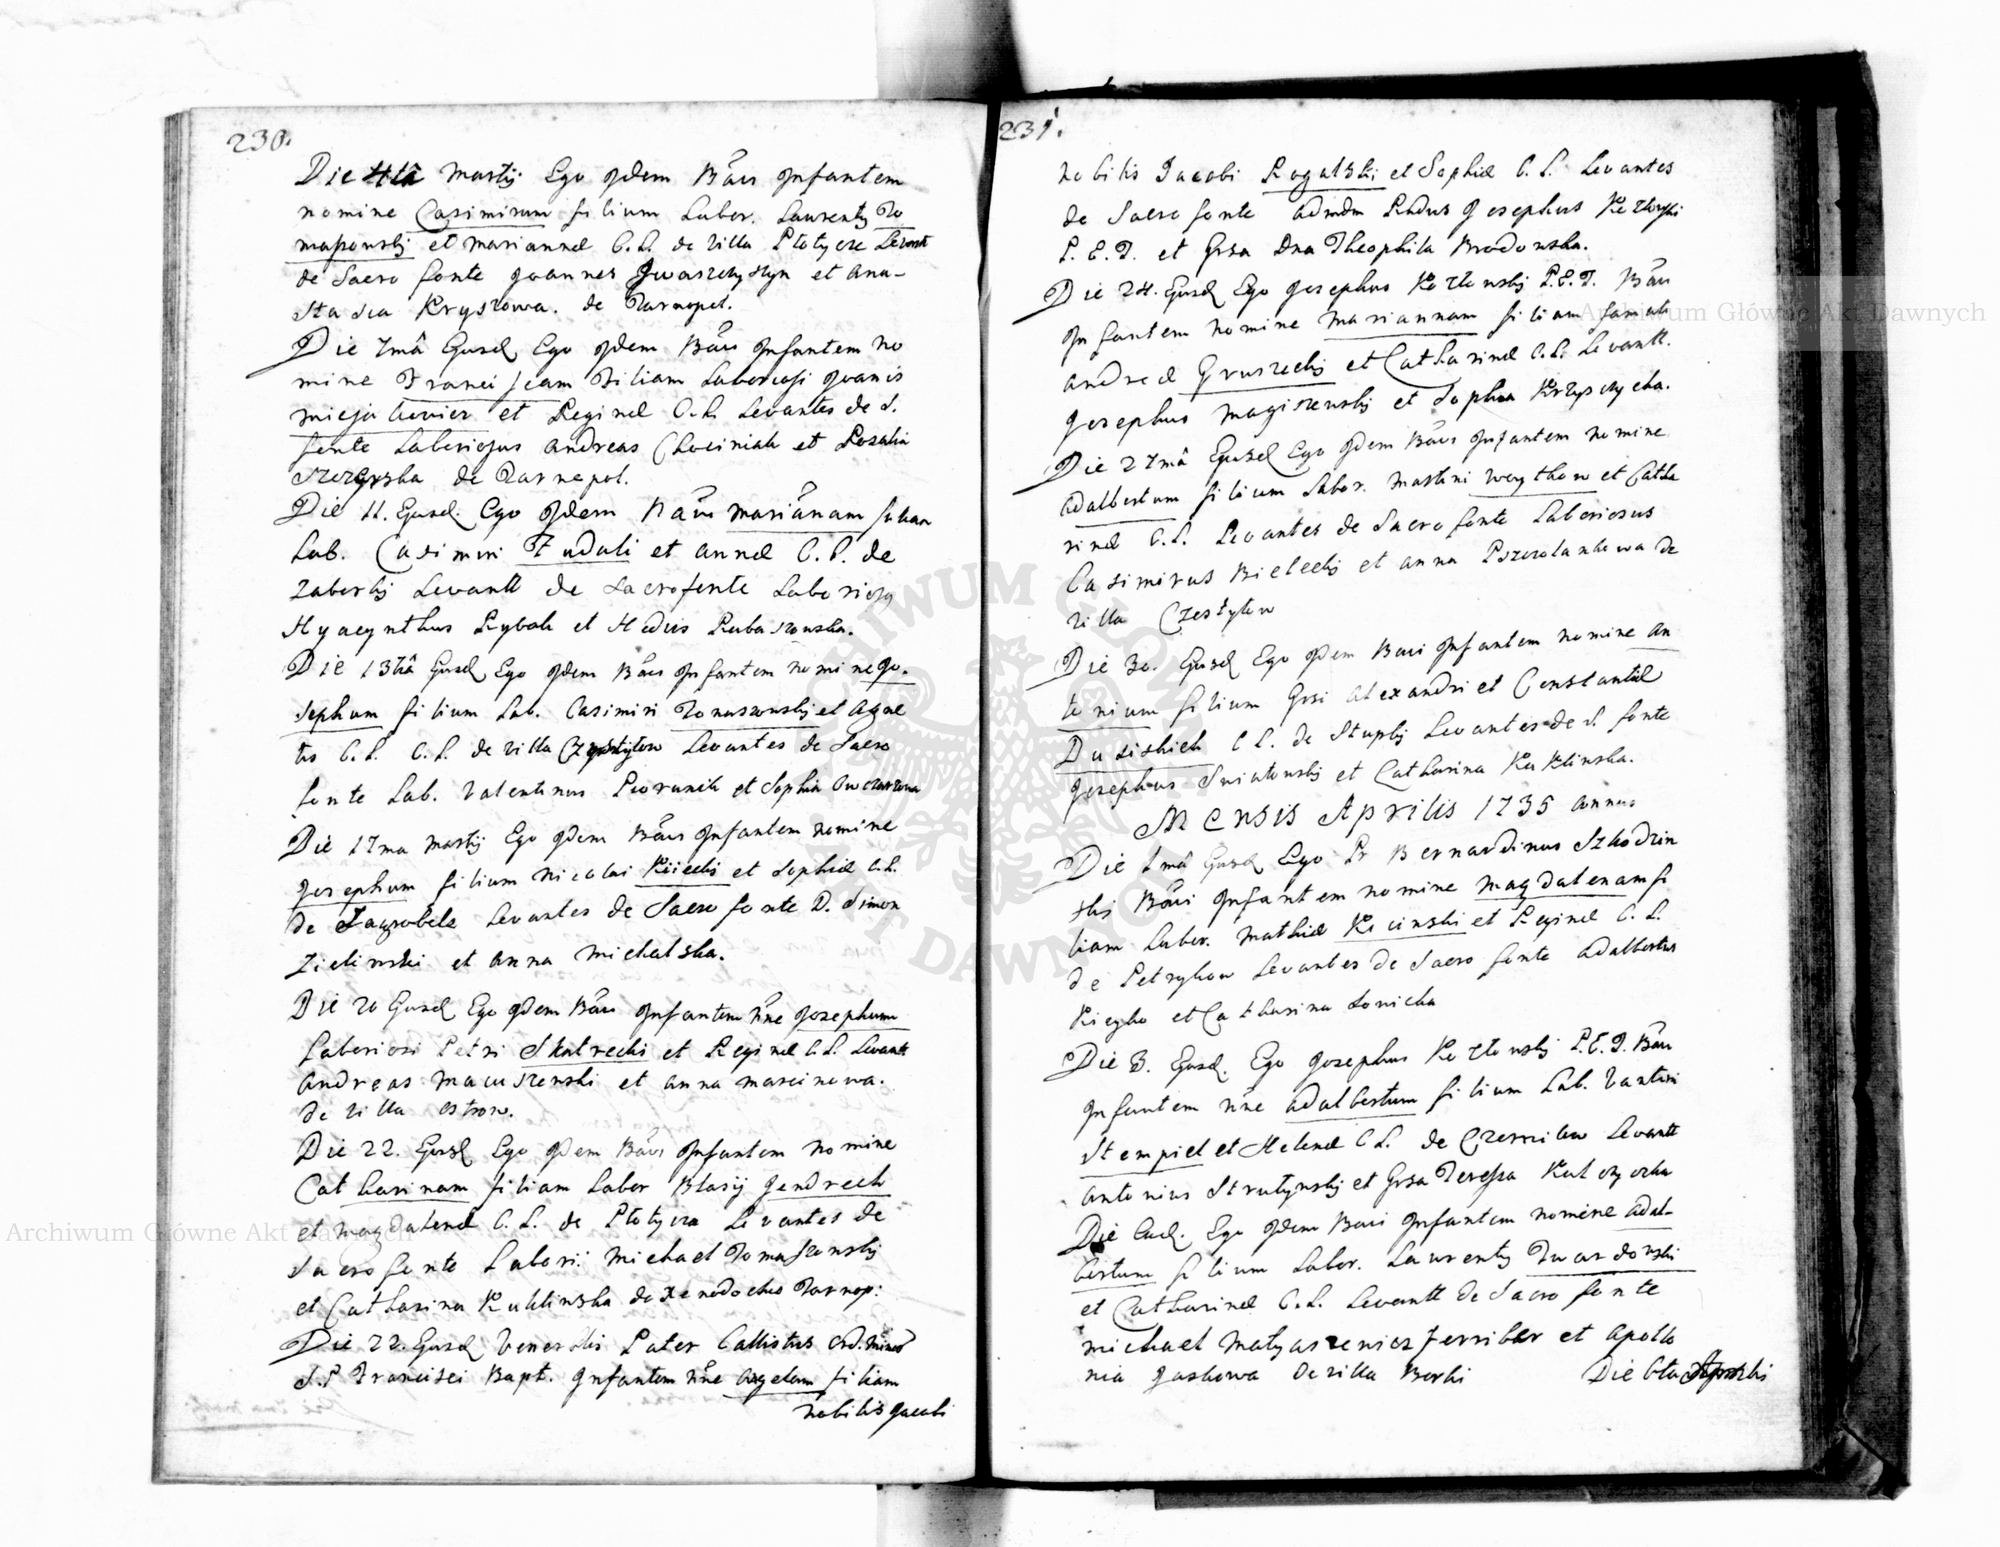 230.
Die 4ta Martij Ego idem Bavi Infantem
nomine Casimirum filium Labor. Laurentij To
maszewskij et Mariannæ C. L. de Villa Płotycze Levant
de Sacro fonte Joannes Iwaszczyszyn et Ana-
stasia Kryszowa. de Tarnopol.
Die 7mâ Ejusd Ego idem Bavi Infantem no
mine Franciscam Filiam Laboriosi Joanis
et Reginæ C. L. Levantes de S.
fonte Laboriosus Andreas Chociniak et Rosalia
de Tarnopol.
Die 11. Ejusd. Ego idem Bavi Mariânam filiam
Lab. Casimiri Fudali et Annæ C. L. de
Zaborkij Levantt de Sacrofonte Laboriosy
Hyacynthus Rybak et Hedvis
Die 13tiâ Ejusd Ego idem Bavi Infantem nomine Jo-
sephum filium Lab. Casimiri Tomaszewskij et Agne
tis C. L. C. L. de Villa Czystyłow Levantes de Sacro
fonte Lab. Valentinus Piorunik et Sophia
Die 17ma Martij Ego idem Bavi Infantem nomine
Josephum filium Nicolai Kiiecki et Sophiæ C. L.
de Zagrobela Levantes de Sacro fonte D. Simon
Zielinski et Anna Michalska.
Die 20 Ejusd Ego idem Bavi Infantem nñe Josephum
Laboriosi Petri Skalrecki et Reginæ C. L. Levantt
Andreas Macuszenski et Anna Marcinowa.
de Villa Ostrow.
Die 22. Ejusd Ego idem Bavi Infantem nomine
Catharinam filiam Labor Blasij Jendrech
et Magdalenæ C. L. de Płotycza Levantes de
Sacro fonte Labori: Michael Tomaszewskij
et Catharina Kuklinska de Xenodochio Tarnop:
Die 22. Ejusd Venerabis Pater Callistus Ord. Minor
S. P Francisci Bapt. Infantem nñe Angelam filiam
nobilis Jacobi
231.
nobilis Jacobi Rogalski et Sophiæ C. L. Levantes
de Sacro fonte Admdm Rndus Josephus Kozłowski
P. E. T. et Grsa Dna Theophila Brodowska.
Die 24. Ejusd Ego Josephus Kozłowskij P. E. T. Bavi
Infantem nomine Mariannam filiam famati
Andreæ Gruszecki et Catharinæ C. L. Levantt.
Josephus Magiszewskij et Sophia Krzyszycha.
Die 27mâ Ejusd Ego idem Bavi Infantem nomine
Adalbertum filium Labor. Martini Woythow et Catha
rinæ C. L. Levantes de Sacro fonte Laboriosus
Casimirus Bieleckij et Anna Pszczolankowa de
Villa Czestyłow
Die 30. Ejusd Ego idem Bavi Infantem nomine An
tonium filium Grsi Alexandri et Constantiæ
Dusiskich C L. de Stupkij Levantes de S. fonte
Josephus Swiatowskij et Catharina Kuklinska.
Mensis Aprilis 1735 Annus
Die 1mâ Ejusd Ego Pr Bernardinus Szkodzin
skij Bavi Infantem nomine Magdalenam fi
liam Labor. Mathiæ Kicinski et Reginæ C. L.
de Petrykow Levantes de Sacro fonte Adalbertus
Kicyło et Catharina Lowicka
Die 3. Ejusd. Ego Josephus Kozłowskij P. E. T. Bavi
Infantem nñe Adalbertum filium Lab. Vantini
Stempiel et Helenæ C L. de Czerniłow Levantt
Antonius Strutynskij et Grsa Teressa
Die Ead. Ego idem Bavi Infantem nomine Adal-
bertum filium Labor. Laurentij Twardowski
et Catharinæ C. L. Levantt de Sacro fonte
Michael Matyaszewicz Ferriber et Apollo
nia Jaskowa de Villa Borki
Die 6ta Aprilis